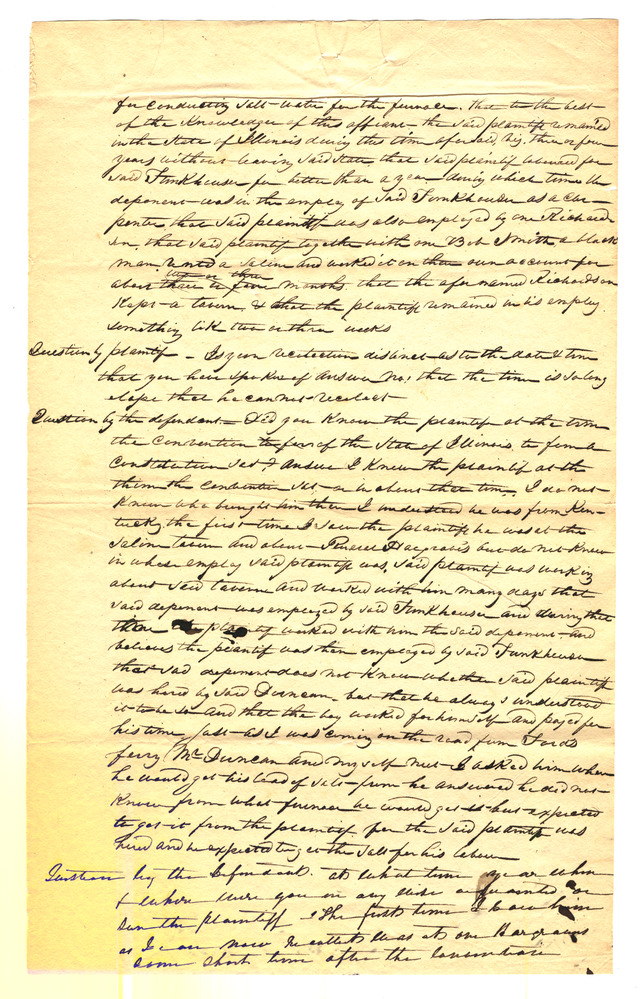 for conducting salt-water for the furnace. That to the best
of the Knowledge of this affiant the said plaintiff remained
in the State of Illinois during this time aforesaid, viz. three or four
years without leaving said state, that said plaintiff laboured for
said Funkhouser for better than a year during which time the
deponent was in the employ of said Funkhouser as a car-
penter, that said plaintiff was also employed by one Richard-
son, that said plaintiff together with one Bob Smith a black
man rented a Saline and worked it on their own account for
two or three
about three or four months. that the afore named Richardson
Kept a tavern, & that the plaintiff remained in his employ
something like two or three weeks
Question by plaintif - Is your recolection distinct as to the date & time
that you have spoken of Answer No, that the time is so long
elapse that he can not recolect
Question by the defendent - Did you Know the plaintif at the time
the Convention of the State of Illinois to form a
Constitution sat? Answer I Knew the plaintif at the
the Convention sat or in about that time, I do not
Know who brought him then I understood he was from Ken-
tucky, the first time I saw the plaintiff he was at the
Saline tavern and about Hargraves but do not Know
in whose employ said plaintif was, said plaintif was working
about said taverne and worked with him many days that
said deponent was employed by said Funkhouser and during that
time the plaintif worked with him the said deponent and
believes the plaintif was then employed by said Funkhouser
that said deponent does not Know whether said plaintiff
was hired by said Duncan, but that he always understood
it to be so and that the boy worked for himself and payed for
his time, Just as I was coming on the road from Fords
ferry Mr Duncan and my self met I asked him where
he would get his load of salt from he answered he did not
Know from what furnace he would get it but expected
to get it from the plaintif for the said plaintif was
hired and he expected to get the Salt for his labour
Question by the defendant. at what time year when
& where were you in any wise acquainted or
sun the plaintiff. The first time I saw him
as I can now recollect was at one Hargraves
some short time after the convention